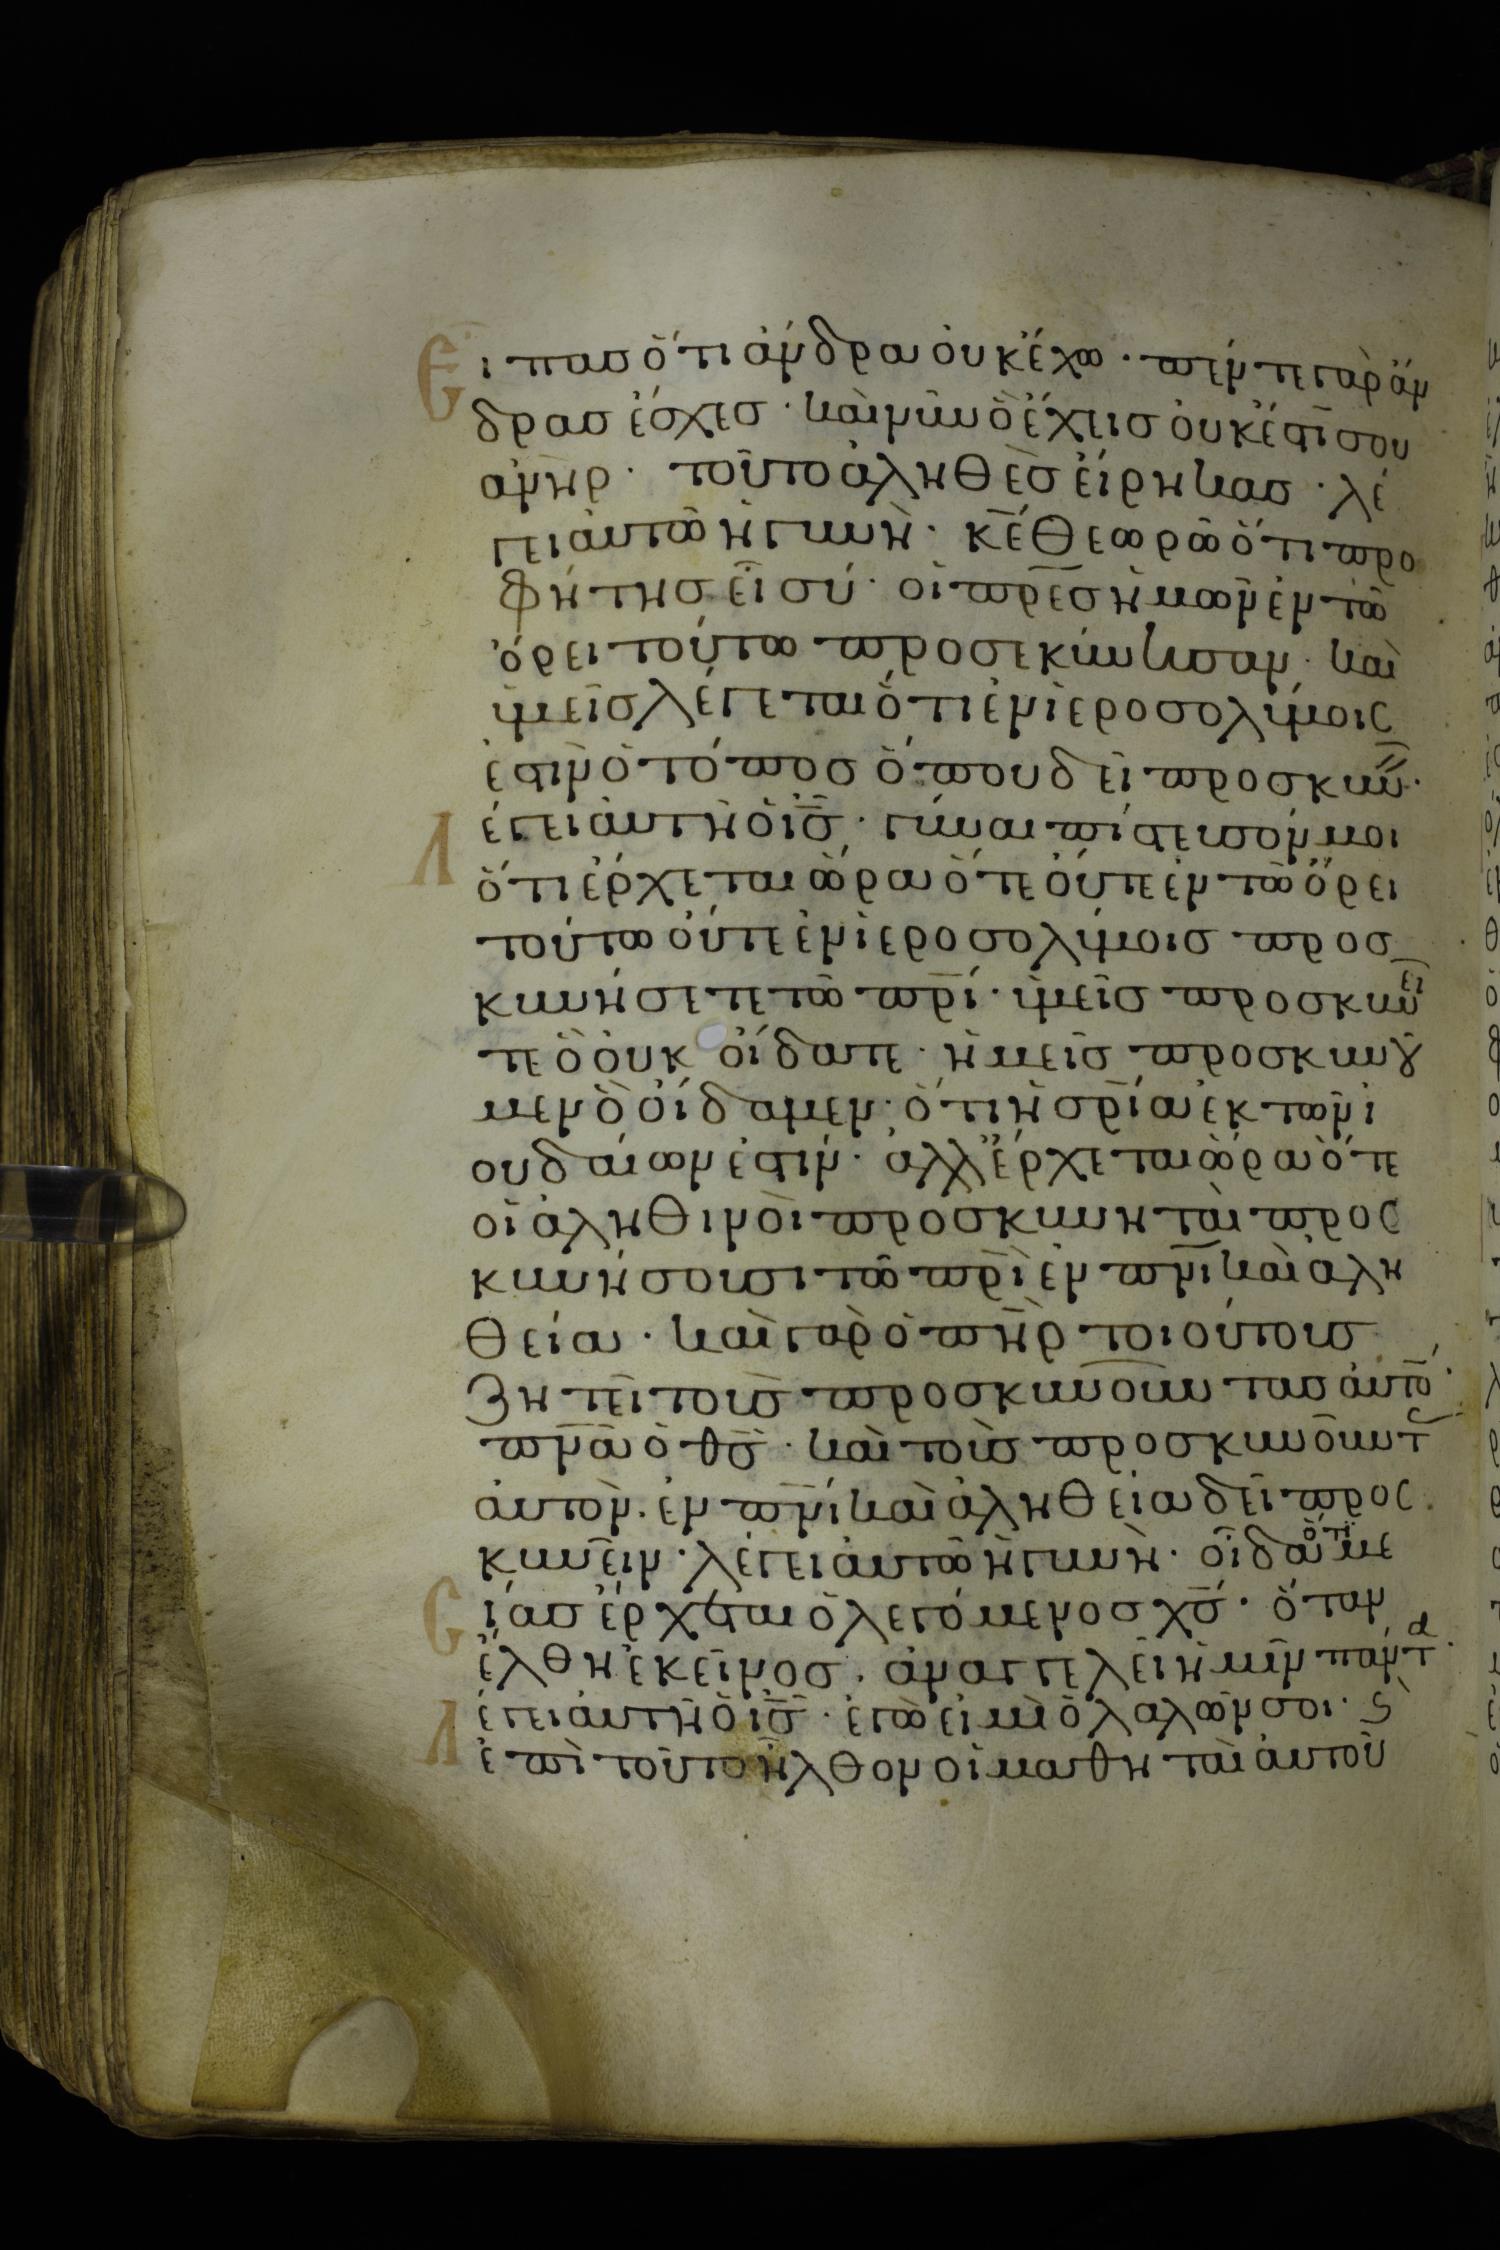 Εἶπας ὅτι ἄνδρα οὐκ ἔχω · πέντε γὰρ ἄν
δρας ἔσχες · καὶ νῦν ὃν ἔχεις οὐκ ἔστι σου
ἀνήρ · τοῦτο ἀληθὲς εἴρηκας · λέ
γει αὐτῶ ἡ γυνή · κ̅ε̅ θεωρῶ ὅτι προ
φήτης εἶ σύ · οἱ π̅ρ̅ε̅ς ἡμῶν ἐν τῶ
ὄρει τούτω προσεκύνησαν · καὶ
ὑμεῖς λέγεται ὅτι ἐν ἱεροσολύμοις
ἐστὶν ὁ τόπος ὅπου δεῖ προσκυν ·
Λέγει αὐτῆ ὁ ι̅ς̅ · γύναι πίστευσόν μοι
ὅτι ἔρχεται ὥρα ὅτε οὔτε ἐν τῶ ὄρει
τούτω οὔτε ἐν ἱεροσολύμοις προσ
κυνήσετε τῶ π̅ρ̅ι̅ · ὑμεῖς προσκυνεῖ
τε ὃ οὐκ οἴδατε · ἡμεῖς προσκυνοῦ
μεν ὃ οἴδαμεν · ὅτι ἡ σ̅ρ̅ί̅α ἐκ τῶν ἰ
ουδαίων ἐστίν · ἀλλ' ἔρχεται ὥρα ὅτε
οἱ ἀληθινοὶ προσκυνηταὶ προς
κυνήσουσι τῶ π̅ρ̅ι̅ ἐν π̅ν̅ι̅ καὶ ἀλη
θεία · καὶ γὰρ ὁ π̅η̅ρ̅ τοιούτους
ζητεῖ τοὺς προσκυνοῦντας αὐτό ·
π̅ν̅α̅ ὁ θ̅ς̅ · καὶ τοὺς προσκυνοῦντ
αὐτὸν · ἐν π̅ν̅ι̅ καὶ ἀληθεία δεῖ προς
κυνεῖν · λέγει αὐτῶ ἡ γυνή · οἶδα ὅτι με
Σίας ἔρχεται ὁ λεγόμενος χ̅ς̅ · ὅταν
ἔλθη ἐκεῖνος · ἀναγγελεῖ ἡμῖν πάντα ·
Λέγει αὐτῆ ὁ ι̅ς̅ · ἐγώ εἰμι ὁ λαλῶν σοι · ϛ
ἐπὶ τοῦτο ἦλθον οἱ μαθηταὶ αὐτοῦ